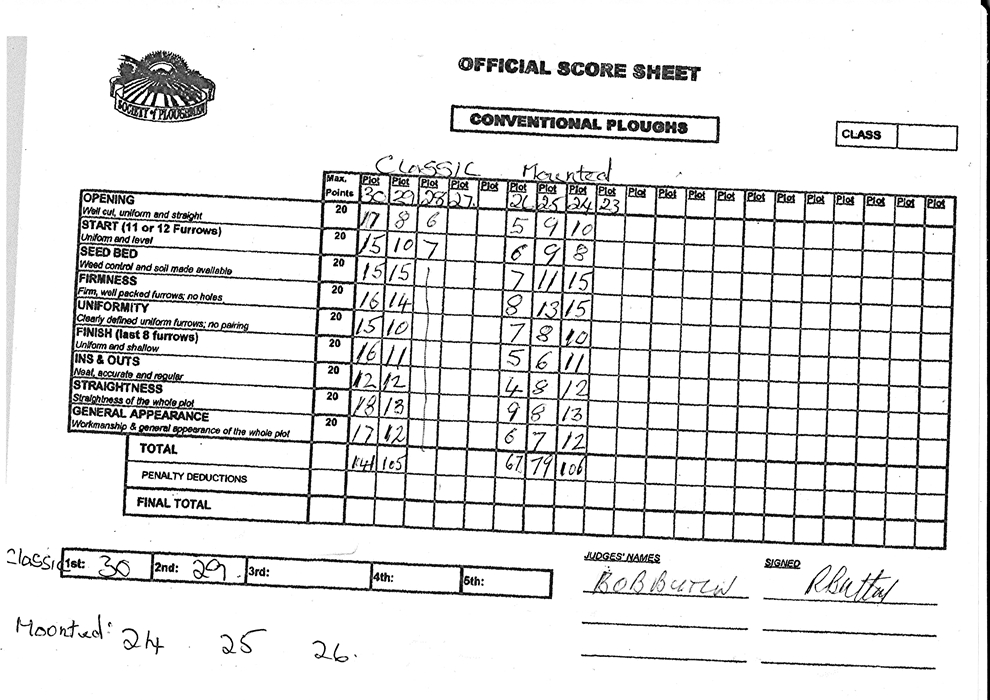 SOCIETY of PLOUGHMEN
OFFICIAL SCORE SHEET
CONVENTIONAL PLOUGHS
CLASS
CLASSIC Mounted
Max. Points Plot Plot Plot Plot Plot Plot Plot Plot Plot Plot Plot Plot Plot Plot Plot Plot Plot Plot Plot Plot
30 29 28 27 26 25 24 23
OPENING 20 17 8 6 5 9 10
Well cut, uniform and straight
START (11 or 12 Furrows) 20 15 10 7 6 9 8
Uniform and level
SEED BED 20 15 15 7 11 15
Weed control and soil made available
FIRMNESS 20 16 14 8 13 15
Firm, well packed furrows; no holes
UNIFORMITY 20 15 10 7 8 10
Clearly defined uniform furrows; no pairing
FINISH (last 8 furrows) 20 16 11 5 6 11
Uniform and shallow
INS & OUTS 20 12 12 4 8 12
Neat, accurate and regular
STRAIGHTNESS 20 18 13 9 8 13
Straightness of the whole plot
GENERAL APPEARANCE 20 17 12 6 7 12
Workmanship & general appearance of the whole plot
TOTAL 141 105 67 79 106
PENALTY DEDUCTIONS
FINAL TOTAL
Classic 1st: 30 2nd: 29. 3rd: 4th: 5th:
JUDGES' NAMES SIGNED
BOB
Moonted: 24 25 26.